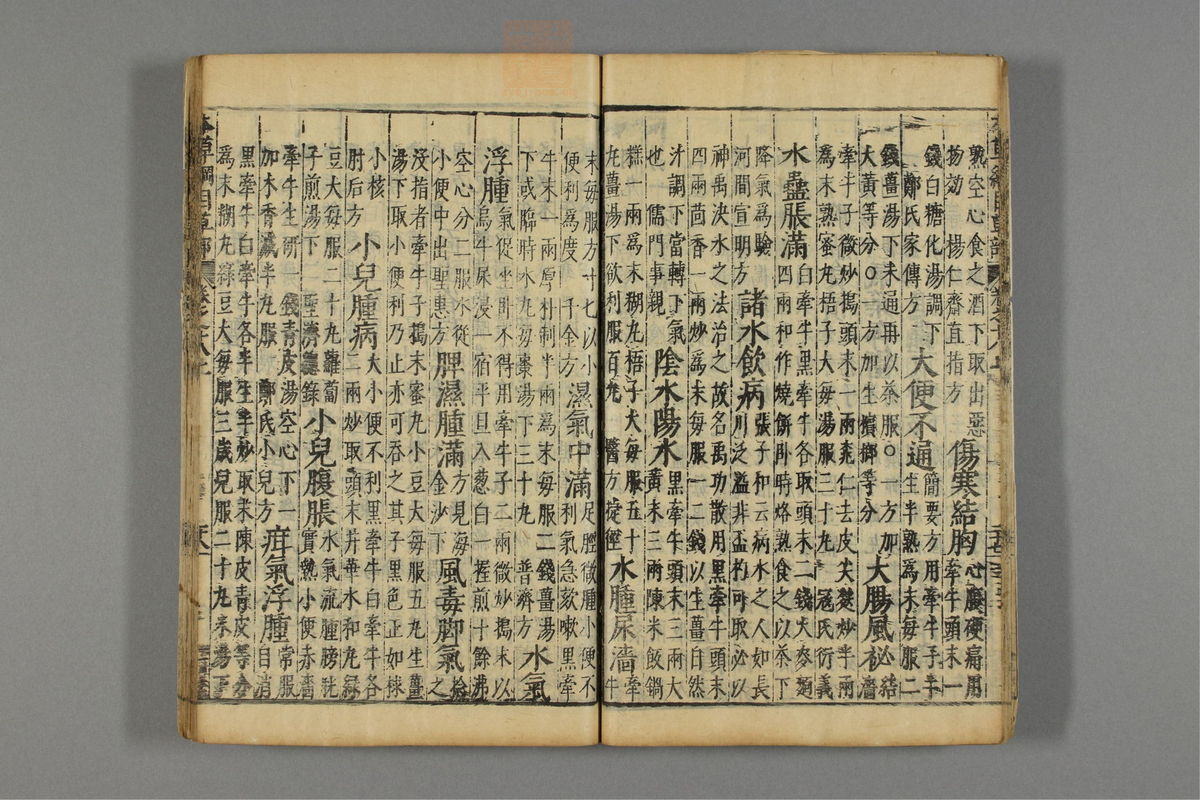 熟空心食之酒下取出惡
物効　楊仁齋直指方
傷寒結胸
心腹硬痛用
牽牛頭末一
錢白糖化湯調下
鄭氏家傳方
大便不通
簡要方用牽牛子半
生半熟為末每服二
錢薑湯下未通再以茶服○一方加
大黃等分○一方加生檳榔等分
大腸風秘
結
澀
牽牛子微炒搗頭末一兩桃仁去皮尖麩炒半兩
為末熟蜜丸梧子大每湯服三十丸　寇氏衍義
水蠱脹滿
白牽牛黑牽牛各取頭末二錢大麥麵
四兩和作燒餅臥時烙熟食之以茶下
降氣為驗
河間宣明方
諸水飲病
張子和云病水之人如長
川泛溢非盃杓可取必以
神禹決水之法治之故名禹功散用黑牽牛頭末
四兩茴香一兩炒為末每服一二錢以生薑自然
汁調下當轉下氣
也　儒門事親
陰水陽水
黑牽牛頭末三兩大
黃末三兩陳米飯鍋
糕一兩為末糊丸梧子大每服五十
丸薑湯下欲利服百丸　醫方捷徑
水腫尿澀
牽
牛
末每服方寸匕以小
便利為度　千金方
濕氣中滿
足脛微腫小便不
利氣急欬嗽黑牽
牛末一兩厚朴制半兩為末每服二錢薑湯
下或臨時水丸每棗湯下三十丸　普濟方
水氣
浮腫
氣從坐臥不得用牽牛子二兩微炒搗末以
烏牛尿浸一宿平旦入葱白一握煎十餘沸
空心分二服水從
小便中出聖惠方
脾濕腫滿
方見海
金沙下
風毒脚氣
捻
之
沒指者牽牛子搗末蜜丸小豆大每服五丸生薑
湯下取小便利乃止亦可吞之其子黑色正如梂
小核
肘后方
小兒腫病
大小便不利黑牽牛白牽牛各
二兩炒取頭末井華水和丸綠
豆大每服二十丸蘿蔔
子煎湯下　聖濟總錄
小兒腹脹
水氣流腫膀胱
實熱小便赤澀
牽牛生研一錢青皮湯空心下一
加木香減半丸服　鄭氏小兒方
疳氣浮腫
常服
自消
黑牽牛白牽牛各半生半炒取末陳皮青皮等分
為末糊丸綠豆大每服三歲兒服二十丸米湯下
本草綱目草部